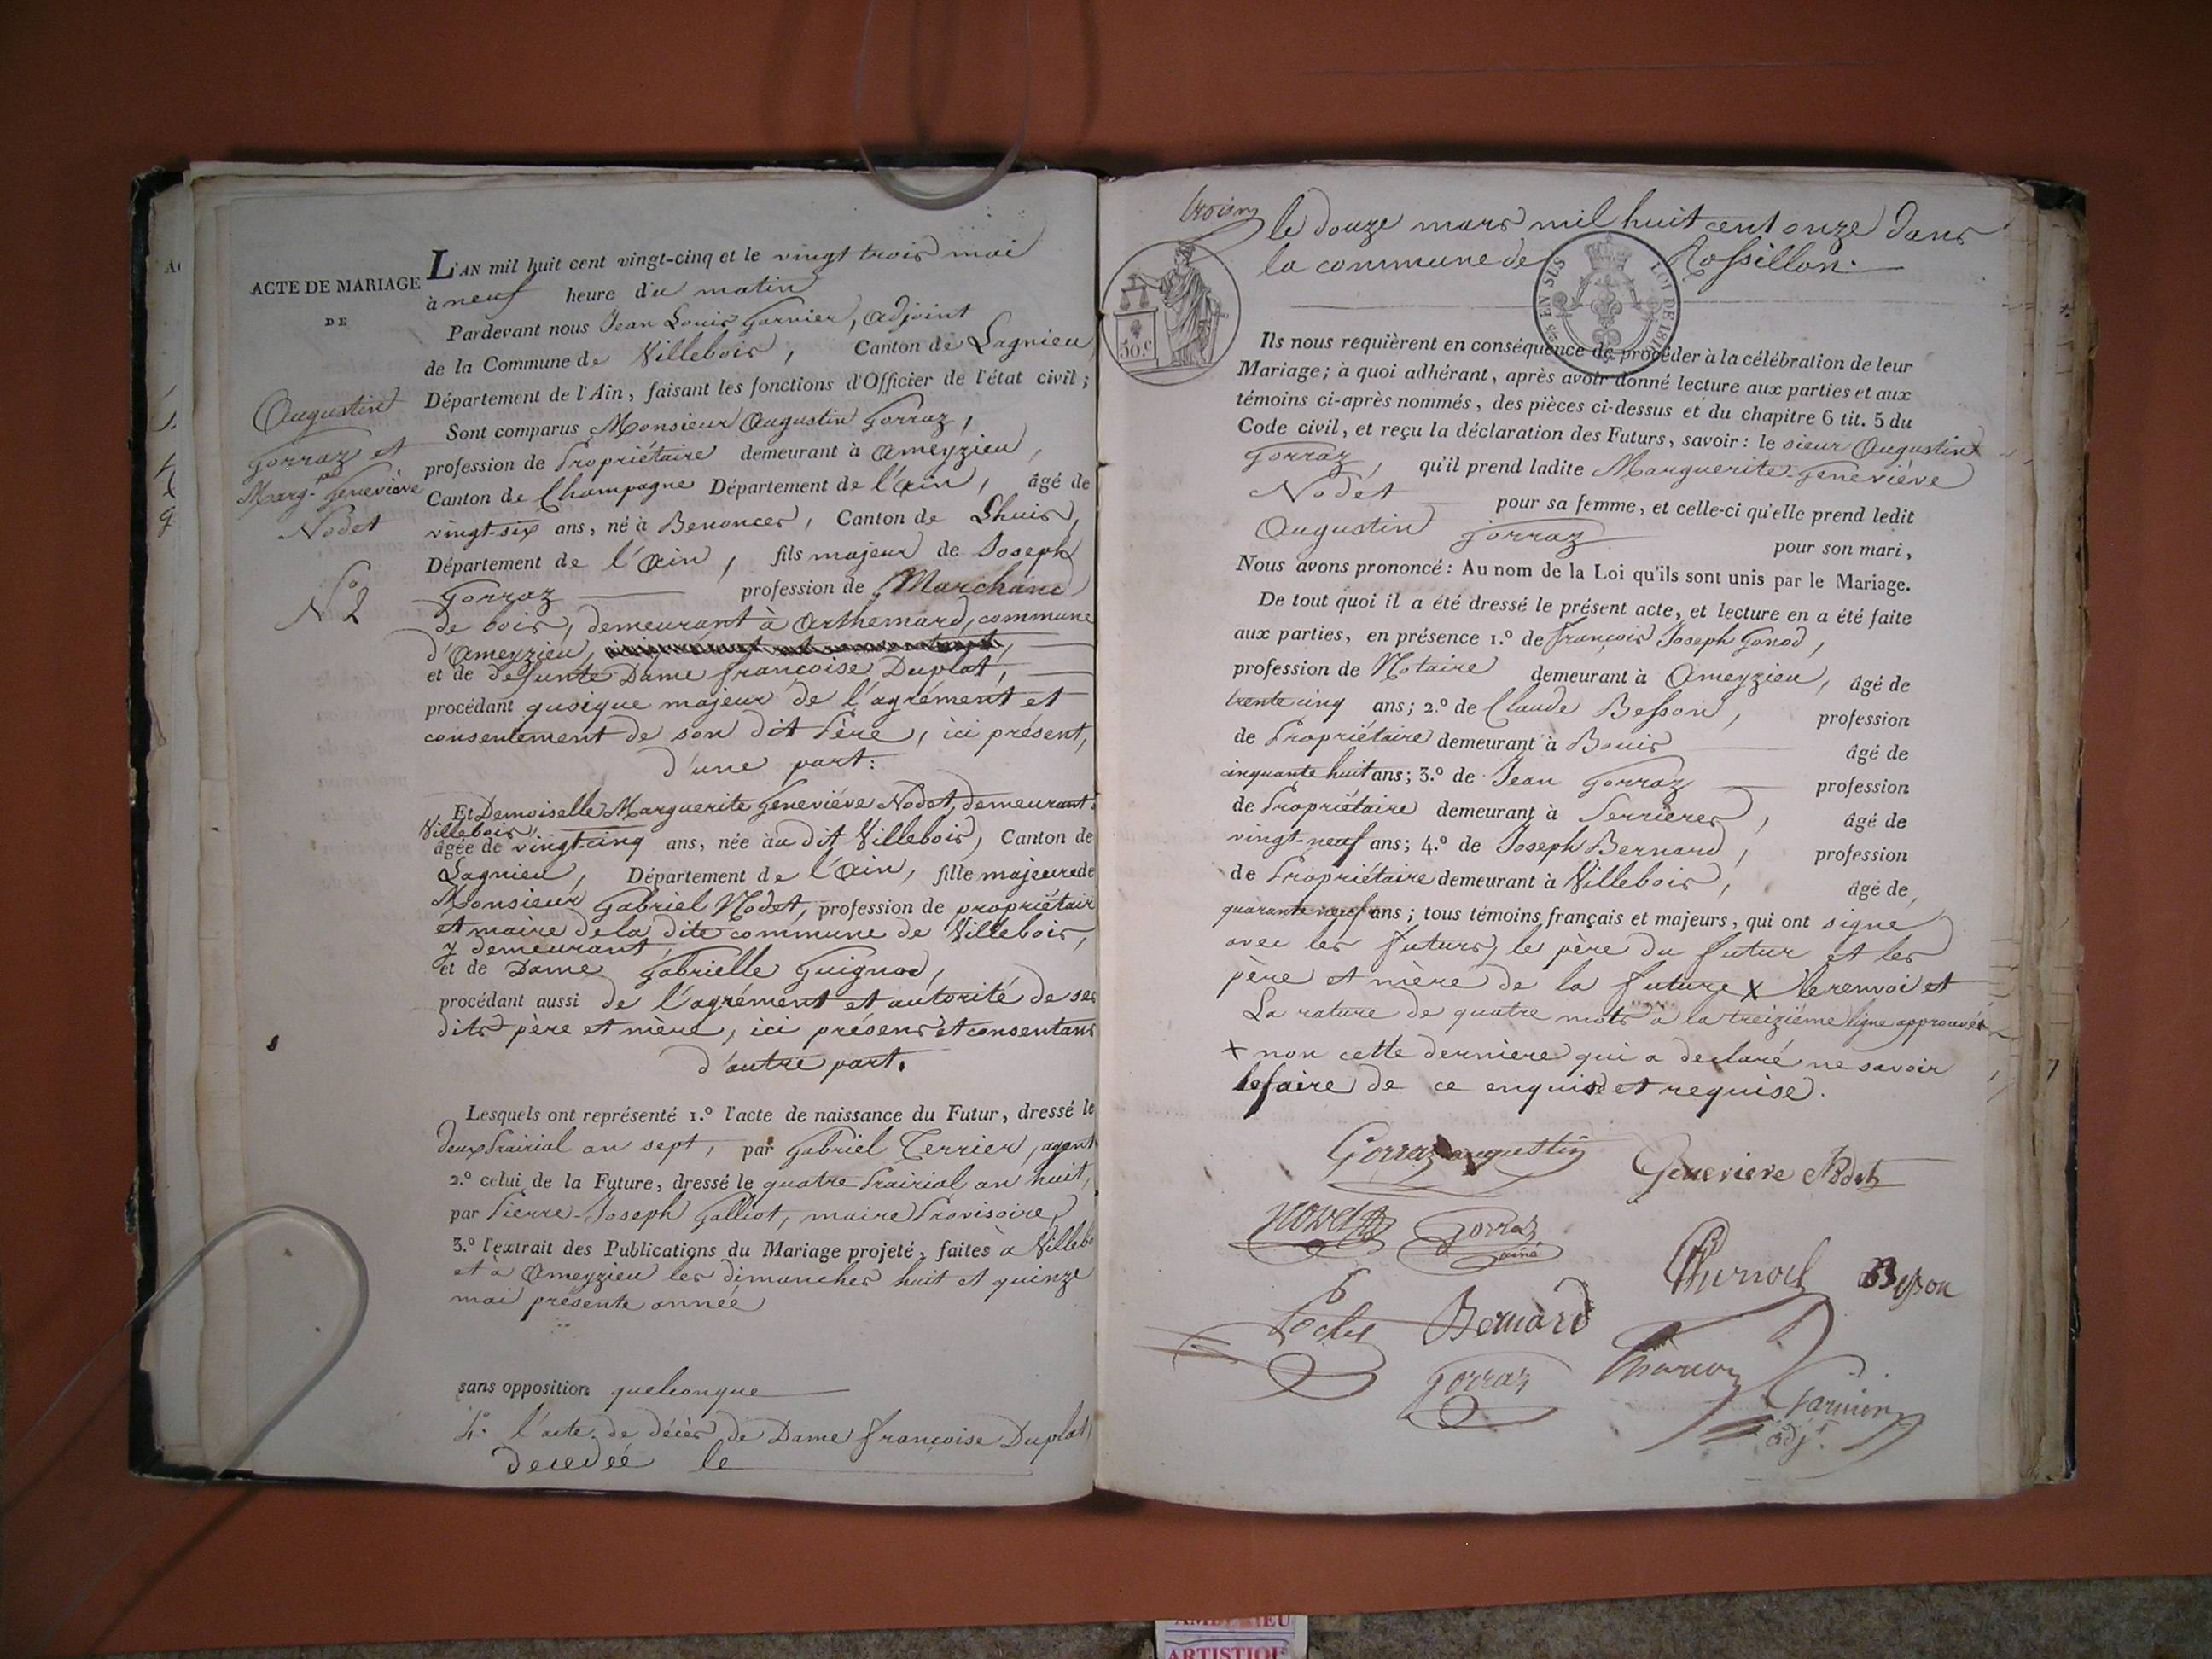 ACTE DE MARIAGE
DE
Augustin
Gorraz et
Marg.te Geneviève
Nodet
N.o 2
L'AN mil huit cent vingt-cinq et le vingt trois mai
à neuf heure du matin
Pardevant nous Jean Louis Garnier, adjoint
de la Commune de Villebois, Canton de Lagnieu
Département de l'Ain, faisant les fonctions d'Officier de l'état civil;
Sont comparus Monsieur Augustin Gorraz,
profession de Propriétaire demeurant à Ameyzieu,
Canton de Champagne Département de l'Ain, âgé de
vingt-six ans, né à Benonces, Canton de Lhuis,
Département de l'Ain, fils majeur de Joseph
Gorraz profession de Marchand
de bois, demeurant à Arthemard, commune
d'Ameyzieu,
et de defunte Dame françoise Duplat,
procédant quoique majeur de l'agrément et
consentement de son dit Père, ici présent,
d'une part:
Et Demoiselle Marguerite Geneviéve Nodet, demeurant
Villebois,
âgée de vingt-cinq ans, née au dit Villebois, Canton de
Lagnieu, Département de l'Ain, fille majeure de
Monsieur Gabriel Nodet, profession de propriétair
et maire de la dite commune de Villebois,
y demeurant,
et de Dame Gabrielle Guignod,
procédant aussi de l'agrément et autorité de ses
dits père et mère, ici présens et consentans
d'autre part.
Lesquels ont représenté 1.º l'acte de naissance du Futur, dressé le
deux Prairial an sept, par Gabriel Terrier, agent
2.º celui de la Future, dressé le quatre Prairial an huit,
par Pierre-Joseph Galliot, maire Provisoire,
3.º l'extrait des Publications du Mariage projeté, faites à Villebo
et à Ameyzieu les dimanches huit et quinze
mai présente année
sans opposition quelconque
4.º l'acte de décès de Dame françoise Duplat,
decedée le
le douze mars mil huit cent onze dans
la commune de Rossillon.
50.c
EN SUS
LOI DE 1816
Ils nous requièrent en conséquence de procéder à la célébration de leur
Mariage; à quoi adhérant, après avoir donné lecture aux parties et aux
témoins ci-après nommés, des pièces ci-dessus et du chapitre 6 tit. 5 du
Code civil, et reçu la déclaration des Futurs, savoir: le sieur Augustin
Gorraz, qu'il prend ladite Marguerite-Geneviève
Nodet pour sa femme, et celle-ci qu'elle prend ledit
Augustin Gorraz pour son mari,
Nous avons prononcé: Au nom de la Loi qu'ils sont unis par le Mariage.
De tout quoi il a été dressé le présent acte, et lecture en a été faite
aux parties, en présence 1.º de françois Joseph Gonod,
profession de Notaire demeurant à Ameyzieu, âgé de
trente cinq ans; 2.º de Claude Besson, profession
de Propriétaire demeurant à Bouis âgé de
cinquante huit ans; 3.º de Jean Gorraz profession
de Propriétaire demeurant à Serrieres, âgé de
vingt-neuf ans; 4.º de Joseph Bernard, profession
de Propriétaire demeurant à Villebois, âgé de
quarante neuf ans; tous témoins français et majeurs, qui ont signé
avec les futurs, le père du futur et les
père et mère de la future X le renvoi et
La rature de quatre mots à la treizième ligne approuvés
X non cette derniere qui a declaré ne savoir
le faire de ce enquise et requise.
Gorraz augustin
Genevieve Nodet
Nodet
Gorraz
ainé
Besson
Bernard
Gorraz
Garnier
adj.t